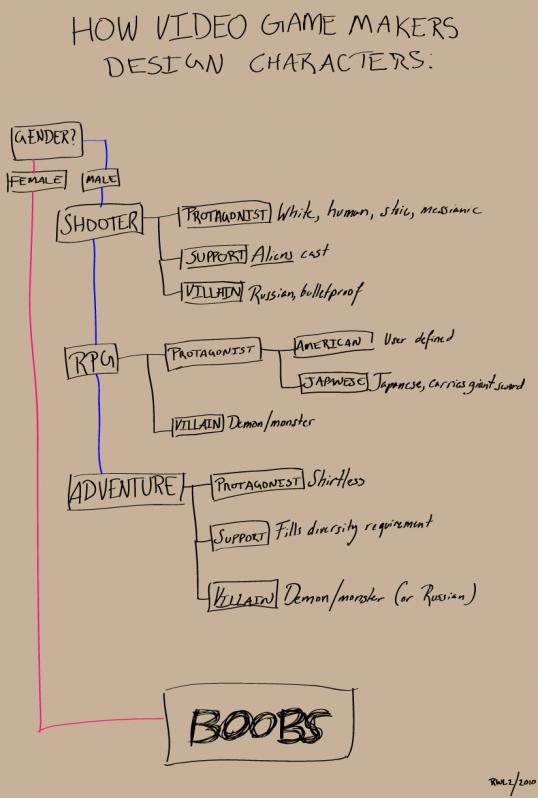 HOW VIDEO GAME MAKERS
DESIGN CHARACTERS:
GENDER?
FEMALE
MALE
SHOOTER
PROTAGONIST White, human, stoic, messianic
SUPPORT Aliens cast
VILLAIN Russian, bulletproof
RPG
PROTAGONIST
AMERICAN User defined
JAPANESE Japanese, carries giant sword
VILLAIN Demon/monster
ADVENTURE
PROTAGONIST Shirtless
SUPPORT Fills diversity requirement
VILLAIN Demon/monster (or Russian)
BOOBS
RWLZ/2010